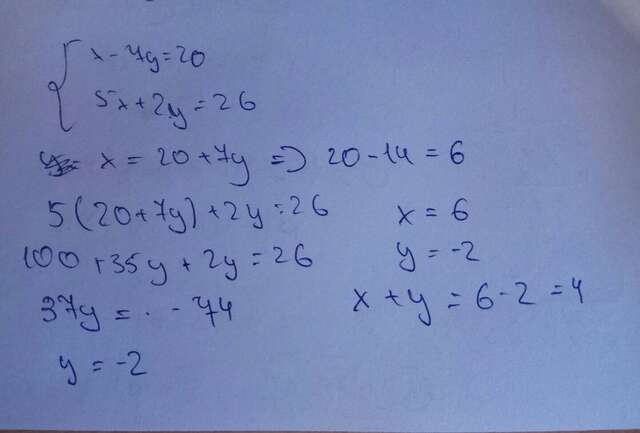 x - 7y = 20
5x + 2y = 26
x = 20 + 7y => 20 - 14 = 6
5(20+7y) + 2y = 26
x = 6
100 + 35y + 2y = 26
y = -2
37y = . - 74
x + y = 6 - 2 = 4
y = -2